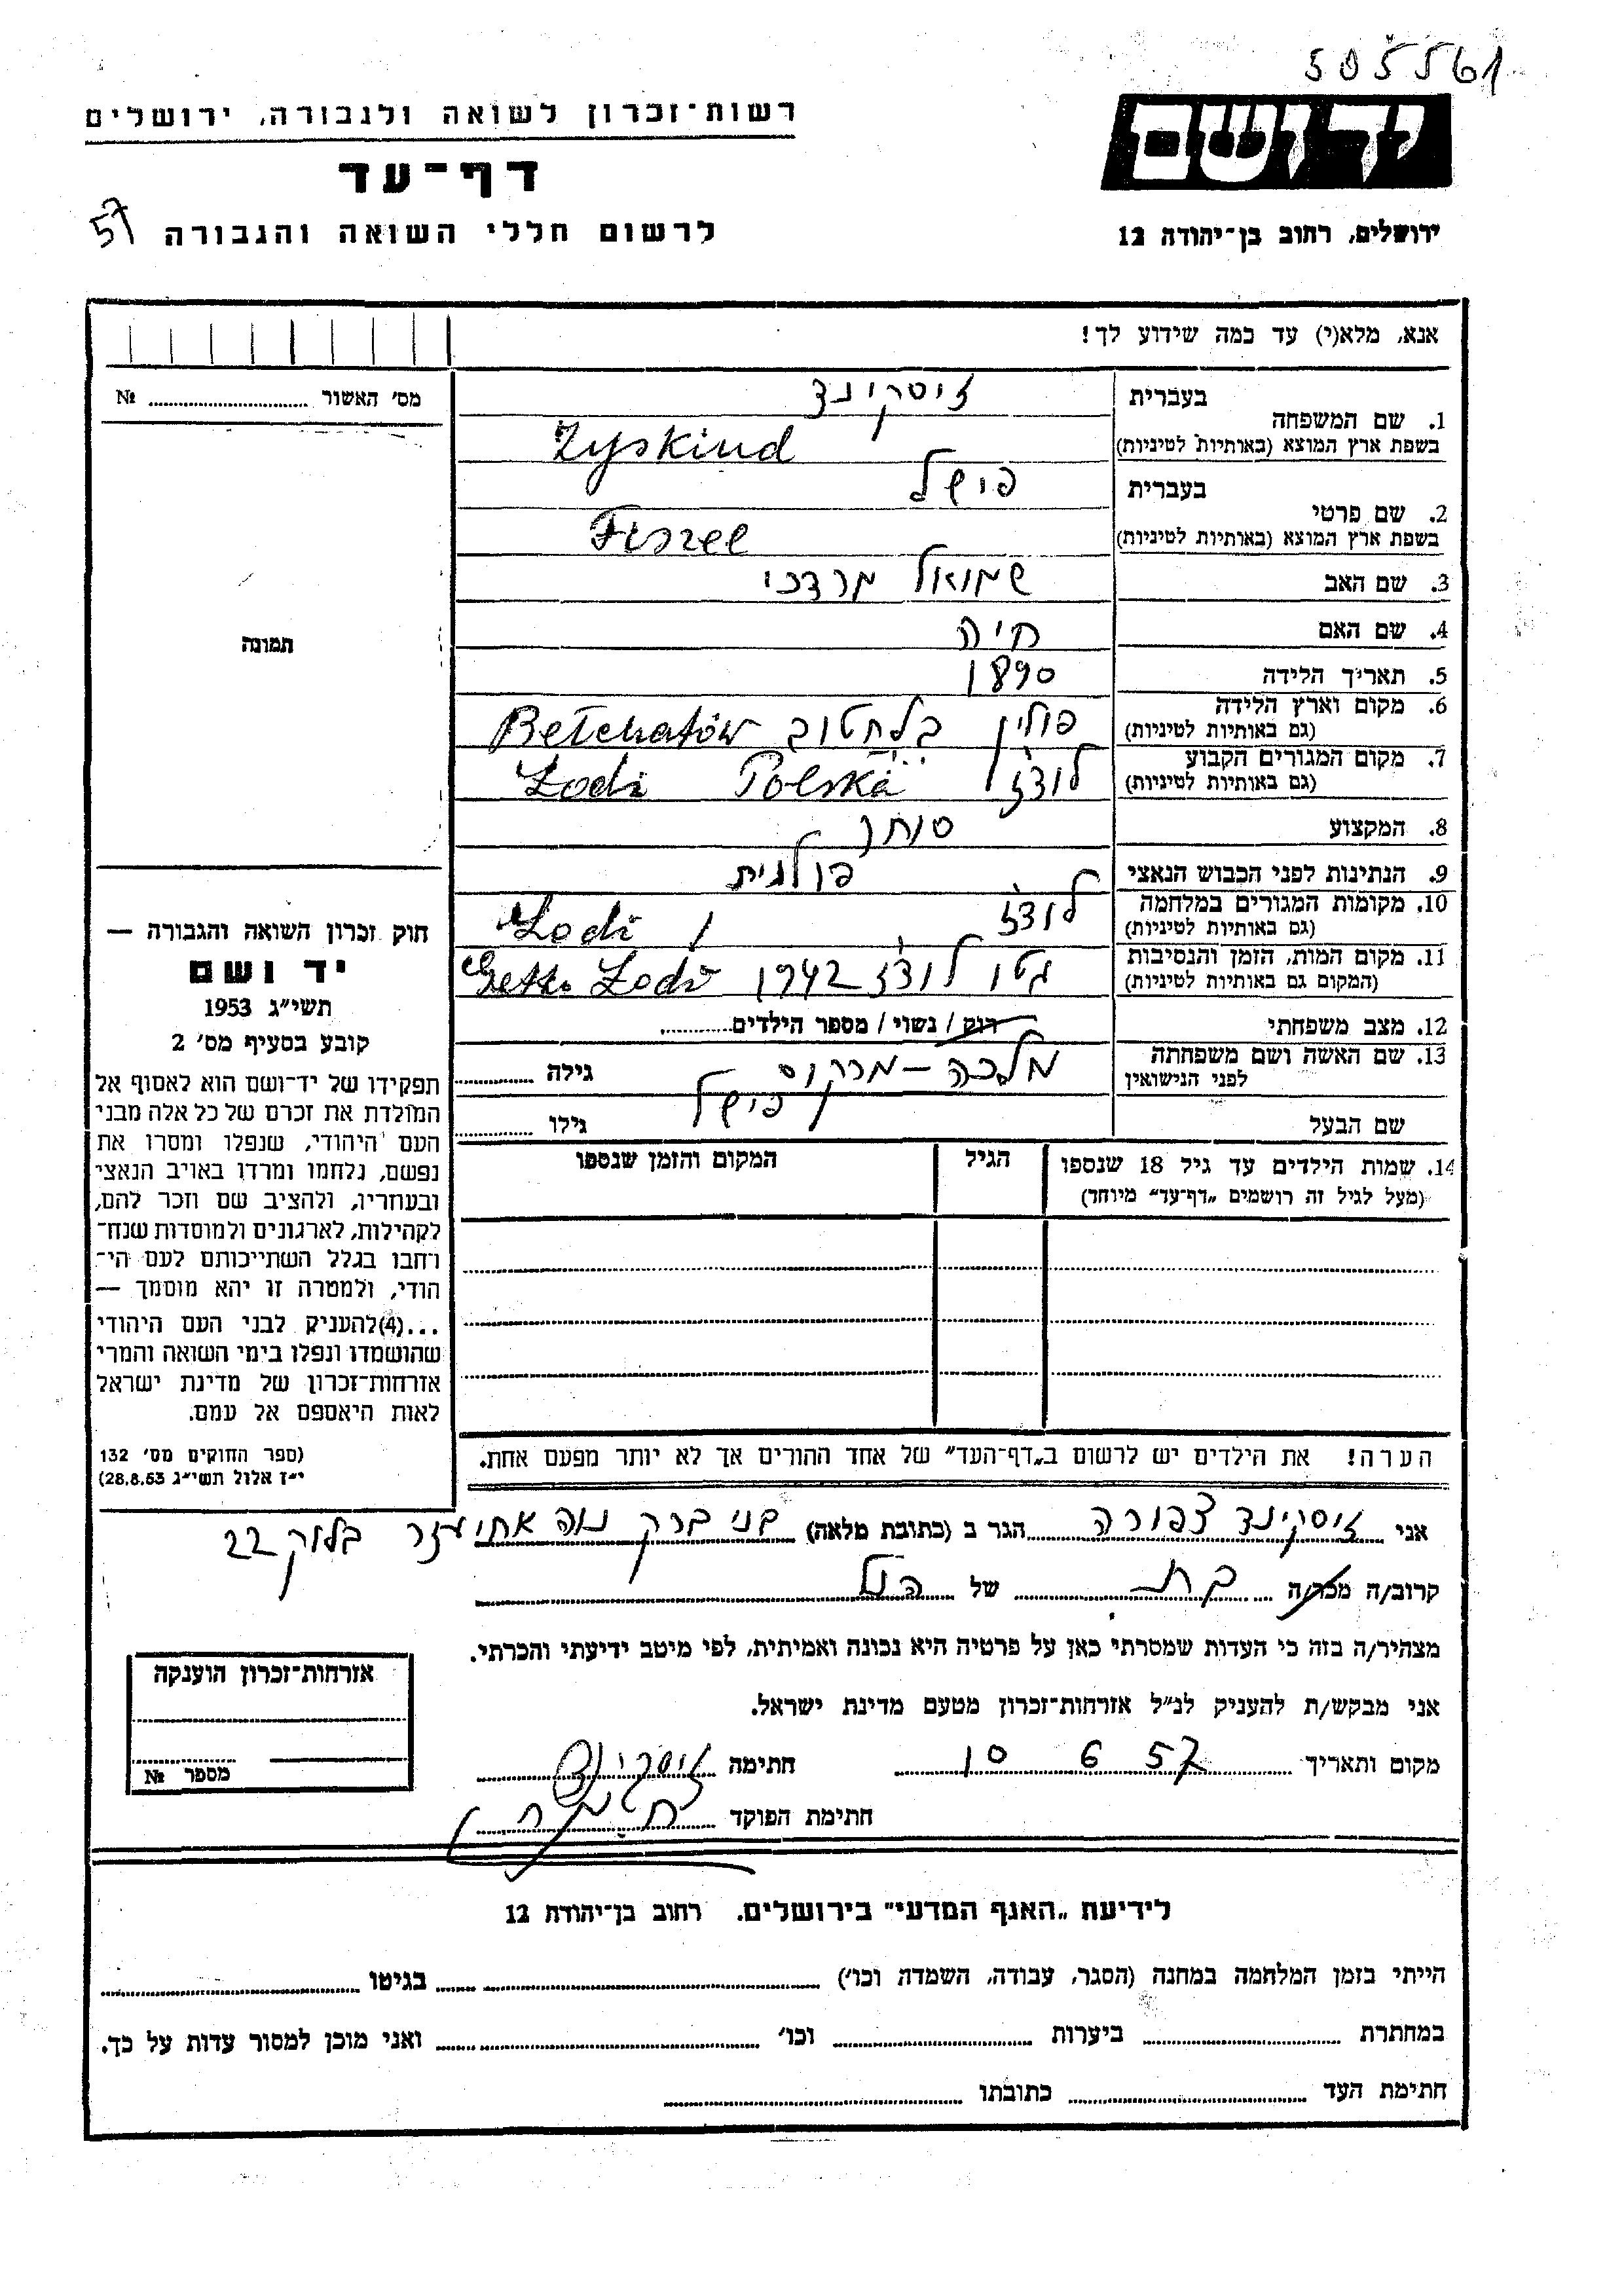 505561
ידושם
ירושלים, רחוב בן־יהודה 12
רשות־זכרון לשואה ולגבורה, ירושלים
דף־עד
לרשום חללי השואה והגבורה
57
אנא, מלא(י) עד כמה שידוע לך!
מס׳ האשור № ..........
תמונה
1. שם המשפחה
בעברית
זיסקינד
בשפת ארץ המוצא (באותיות לטיניות)
Zyskind
2. שם פרטי
בעברית
פישל
בשפת ארץ המוצא (באותיות לטיניות)
Fiszel
3. שם האב שמואל מרדכי
4. שם האם חיה
5. תאריך הלידה 1890
6. מקום וארץ הלידה
(גם באותיות לטיניות)
פולין בלחטוב Bełchatów
7. מקום המגורים הקבוע
(גם באותיות לטיניות)
לודז Łodź Polska
8. המקצוע סוחר
9. הנתינות לפני הכבוש הנאצי פולנית
10. מקומות המגורים במלחמה
(גם באותיות לטיניות)
לודז / Łodź
11. מקום המות, הזמן והנסיבות
(המקום גם באותיות לטיניות)
גטו לודז 1942 Getto Łodź
12. מצב משפחתי רוק / נשוי / מספר הילדים..........
13. שם האשה ושם משפחתה
לפני הנישואין
מלכה - מרקוס גילה ..........
שם הבעל פישל גילו ..........
14. שמות הילדים עד גיל 18 שנספו
(מעל לגיל זה רושמים „דף־עד״ מיוחד)
הגיל
המקום והזמן שנספו
הערה! את הילדים יש לרשום ב„דף־העד״ של אחד ההורים אך לא יותר מפעם אחת.
חוק זכרון השואה והגבורה —
יד ושם
תשי״ג 1953
קובע בסעיף מס׳ 2
תפקידו של יד־ושם הוא לאסוף אל
המולדת את זכרם של כל אלה מבני
העם היהודי, שנפלו ומסרו את
נפשם, נלחמו ומרדו באויב הנאצי
ובעוזריו, ולהציב שם וזכר להם,
לקהילות, לארגונים ולמוסדות שנח־
רחבו בגלל השתייכותם לעם הי־
הודי, ולמטרה זו יהא מוסמך —
...(4)להעניק לבני העם היהודי
שהושמדו ונפלו בימי השואה והמרי
אזרחות־זכרון של מדינת ישראל
לאות היאספם אל עמם.
(ספר החוקים מס׳ 132
י״ז אלול תשי״ג 28.8.53)
אני זיסקינד צפורה הגר ב (כתובת מלאה) בני ברק נוה אחיעזר בלוק 22
קרוב/ה מכר/ה בת של הנ״ל
מצהיר/ה בזה כי העדות שמסרתי כאן על פרטיה היא נכונה ואמיתית, לפי מיטב ידיעתי והכרתי.
אני מבקש/ת להעניק לנ״ל אזרחות־זכרון מטעם מדינת ישראל.
מקום ותאריך 10 6 57 חתימה זיסקינד
חתימת הפוקד
אזרחות־זכרון הוענקה
מספר №
לידיעת „האגף המדעי״ בירושלים. רחוב בן־יהודת 12
הייתי בזמן המלחמה במחנה (הסגר, עבודה, השמדה וכו׳) .......... בגיטו ..........
במחתרת .......... ביערות .......... וכו׳ .......... ואני מוכן למסור עדות על כך.
חתימת העד .......... כתובתו ..........